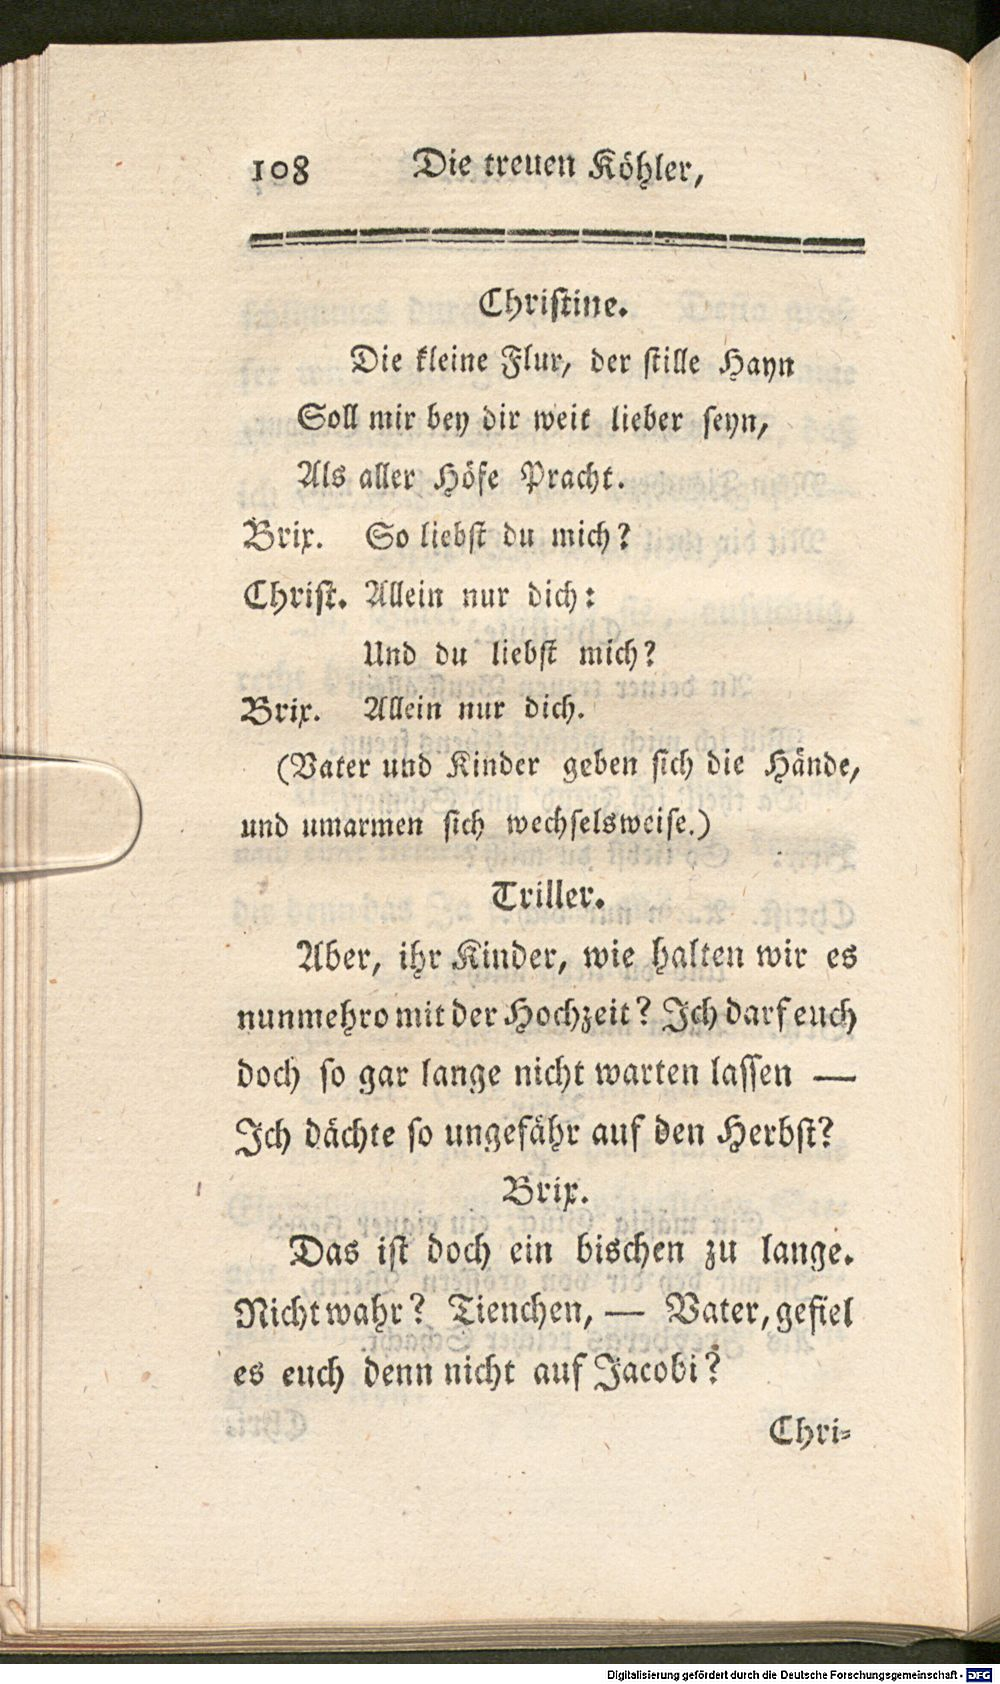 108 Die treuen Köhler,
Christine.
Die kleine Flur, der stille Hayn
Soll mir bey dir weit lieber seyn,
Als aller Höfe Pracht.
Brix. So liebst du mich?
Christ. Allein nur dich:
Und du liebst mich?
Brix. Allein nur dich.
(Vater und Kinder geben sich die Hände,
und umarmen sich wechselsweise.)
Triller.
Aber, ihr Kinder, wie halten wir es
nunmehro mit der Hochzeit? Ich darf euch
doch so gar lange nicht warten lassen —
Ich dächte so ungefähr auf den Herbst?
Brix.
Das ist doch ein bischen zu lange.
Nicht wahr? Tienchen, — Vater, gefiel
es euch denn nicht auf Jacobi?
Chri-
Digitalisierung gefördert durch die Deutsche Forschungsgemeinschaft - DFG